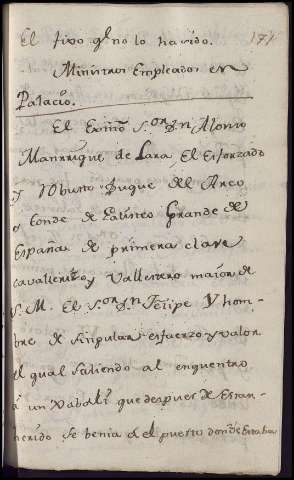 El tiro q.e no lo ha avido. 171
Ministros Empleados en
Palacio.
El Exmo S.or D.n Alonso
Manrrique de Lara, El Esforzado
y robusto Duque del Arco
y Conde de Grande de
España de primera clase
cavallerizo y Vallestero maior de
S. M. El S.or D.n Felipe V hom-
bre de singular esfuerzo y valor
el qual saliendo al enquentro
á un Xabali que despues de estar
herido se benia del puesto donde estaba